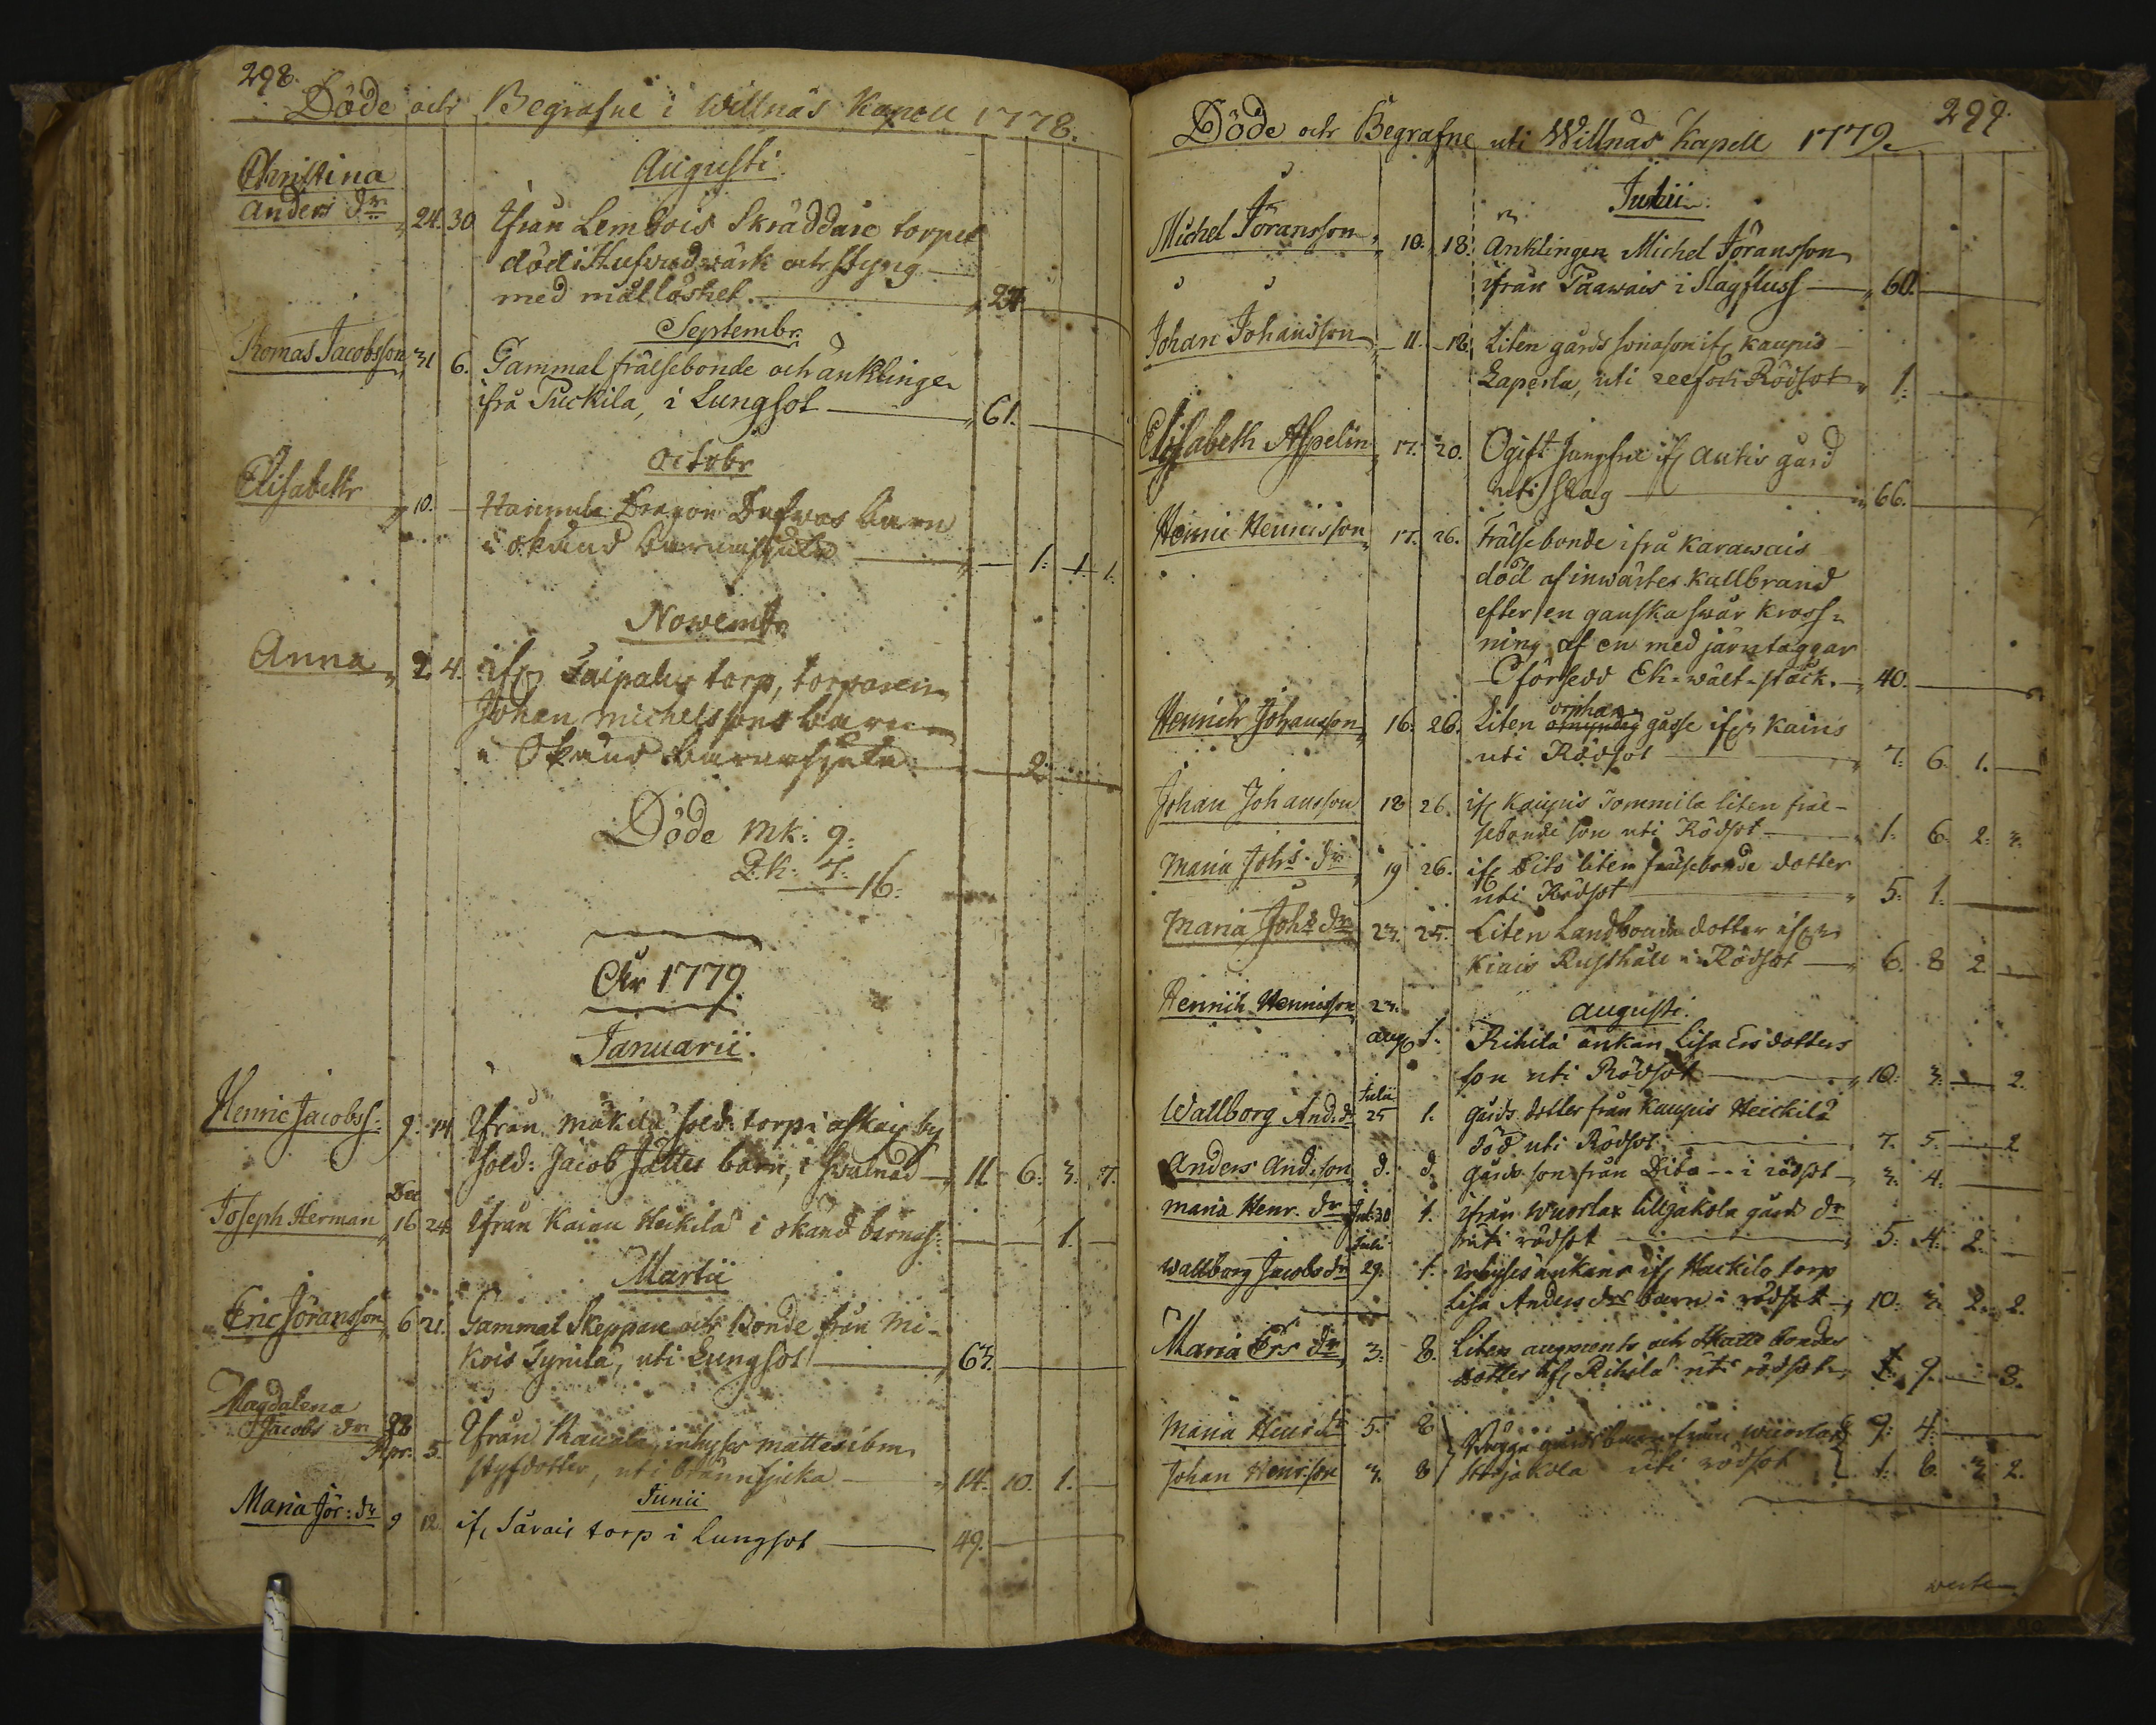 298.
Döde och Begrafne i Willnäs Kapell 1778.
Augusti.
Christina
Anders dr. 24. 30 Ifrån Lembois Skräddare torpet
död i Hufvudwärk och Styng
med mållöshet. 24
Septembr.
Thomas Jacobsson 31 6. Gammal frälsebonde och änklingen
ifrå Tuckila, i Lungsot 61.
Octobr
Elisabeth 10. Hannula Dragon barn
i okänd barnasjuka 1. 1. 1.
Novembr
Anna 2. 4. ifr Taipale torp, torparen
Johan Michelssons barn
i Okänd barnasjuka 2.
Döde Mk: 9.
Q.k: 7. 16.
Åhr 1779.
Januarii.
Henric Jacobss: 9. 14 Ifrån Mäkilä Sold: torp i Askais by
Sold: Jacob barn, i Swalnad 11 6. 3. 7.
Dec
Joseph Herman 16 24 Ifrån Kaian Heikilä i okänd barnas: 1.
Martii
Eric Jöransson 6 21. Gammal Skeppare och Bonde från Mi-
kois Tynilä, uti Lungsot 63.
Magdalena
Jacobs dr. 28
Apr. 5. Ifrån inhyses
styfdotter, uti brännsjuka 14. 10. 1.
Junii
Maria Jör: dr 9 12. ifr Särais torp i Lungsot 49.
299.
Döde och Begrafne uti Willnäs Kapell 1779.
Julii.
Michel Jöransson 10. 18. Änklingen Michel Jöransson
ifrån Paawais i Slagfluss 60.
Johan Johansson 11. 18. Liten gårds sonason ifr Kaupis
Laperla, uti reef och Rödsot 1.
Elisabeth Aspelin 17. 20. Ogift Jungfru ifr Antis gård
uti Slag 66.
Henric Henricsson 17. 26. Frälsebonde ifrå Karawais
död af inwärtes Kallbrand
efter en ganska swår kross-
ning af en med järntaggar
försedd Ek-wält-stock. 40.
orphan
Henrich Johansson 16. 26. Liten gåsse ifr Kairis
uti Rödsot 7. 6. 1.
Johan Johansson 18 26. ifr Kaupis Tommila liten fräl-
sebonde son uti Rödsot 1. 6. 2. 3.
Maria Johs. dr 19 26. ifr Dito liten frälsebonde dotter
uti Rödsot 5. 1.
Maria Johs dr 23. 25. Liten Landbonde dotter ifr
Kiais Rusthåll i Rödsot 6. 8 2
Henrich Henricsson 23.
Augusti.
aug 1. Rihilä änkan Lisa Ersdotters
son uti Rödsot 10. 3. 2.
Julii
Wallborg And: d. 25 1. gårds dotter från Kaupis Heickilä
död uti Rödsot. 7. 5. 2
Anders And.son d. d. gårds son från Dito -- i rödsot 3. 4.
Maria Henr. dr Jul. 30 1. ifrån Wuorlax Lilljakola gårds dr
uti rödsot 5. 4. 2.
Juli
Wallborg Jacobs dr 29. 1. inhyses änkans ifr Hackilo torp
Lisa Anders drs barn i rödsot 10. 3. 2. 2.
Maria Ers dr 3. 8. Liten augments och Skatte bondes
dotter ifr Rihilä uti rödsot 1. 9. 3.
Maria Henrs dr 5. 8 gårds barn från Wuorlax 9. 4.
Johan Henr.son 7. 8 uti rödsot 1. 6. 3. 2.